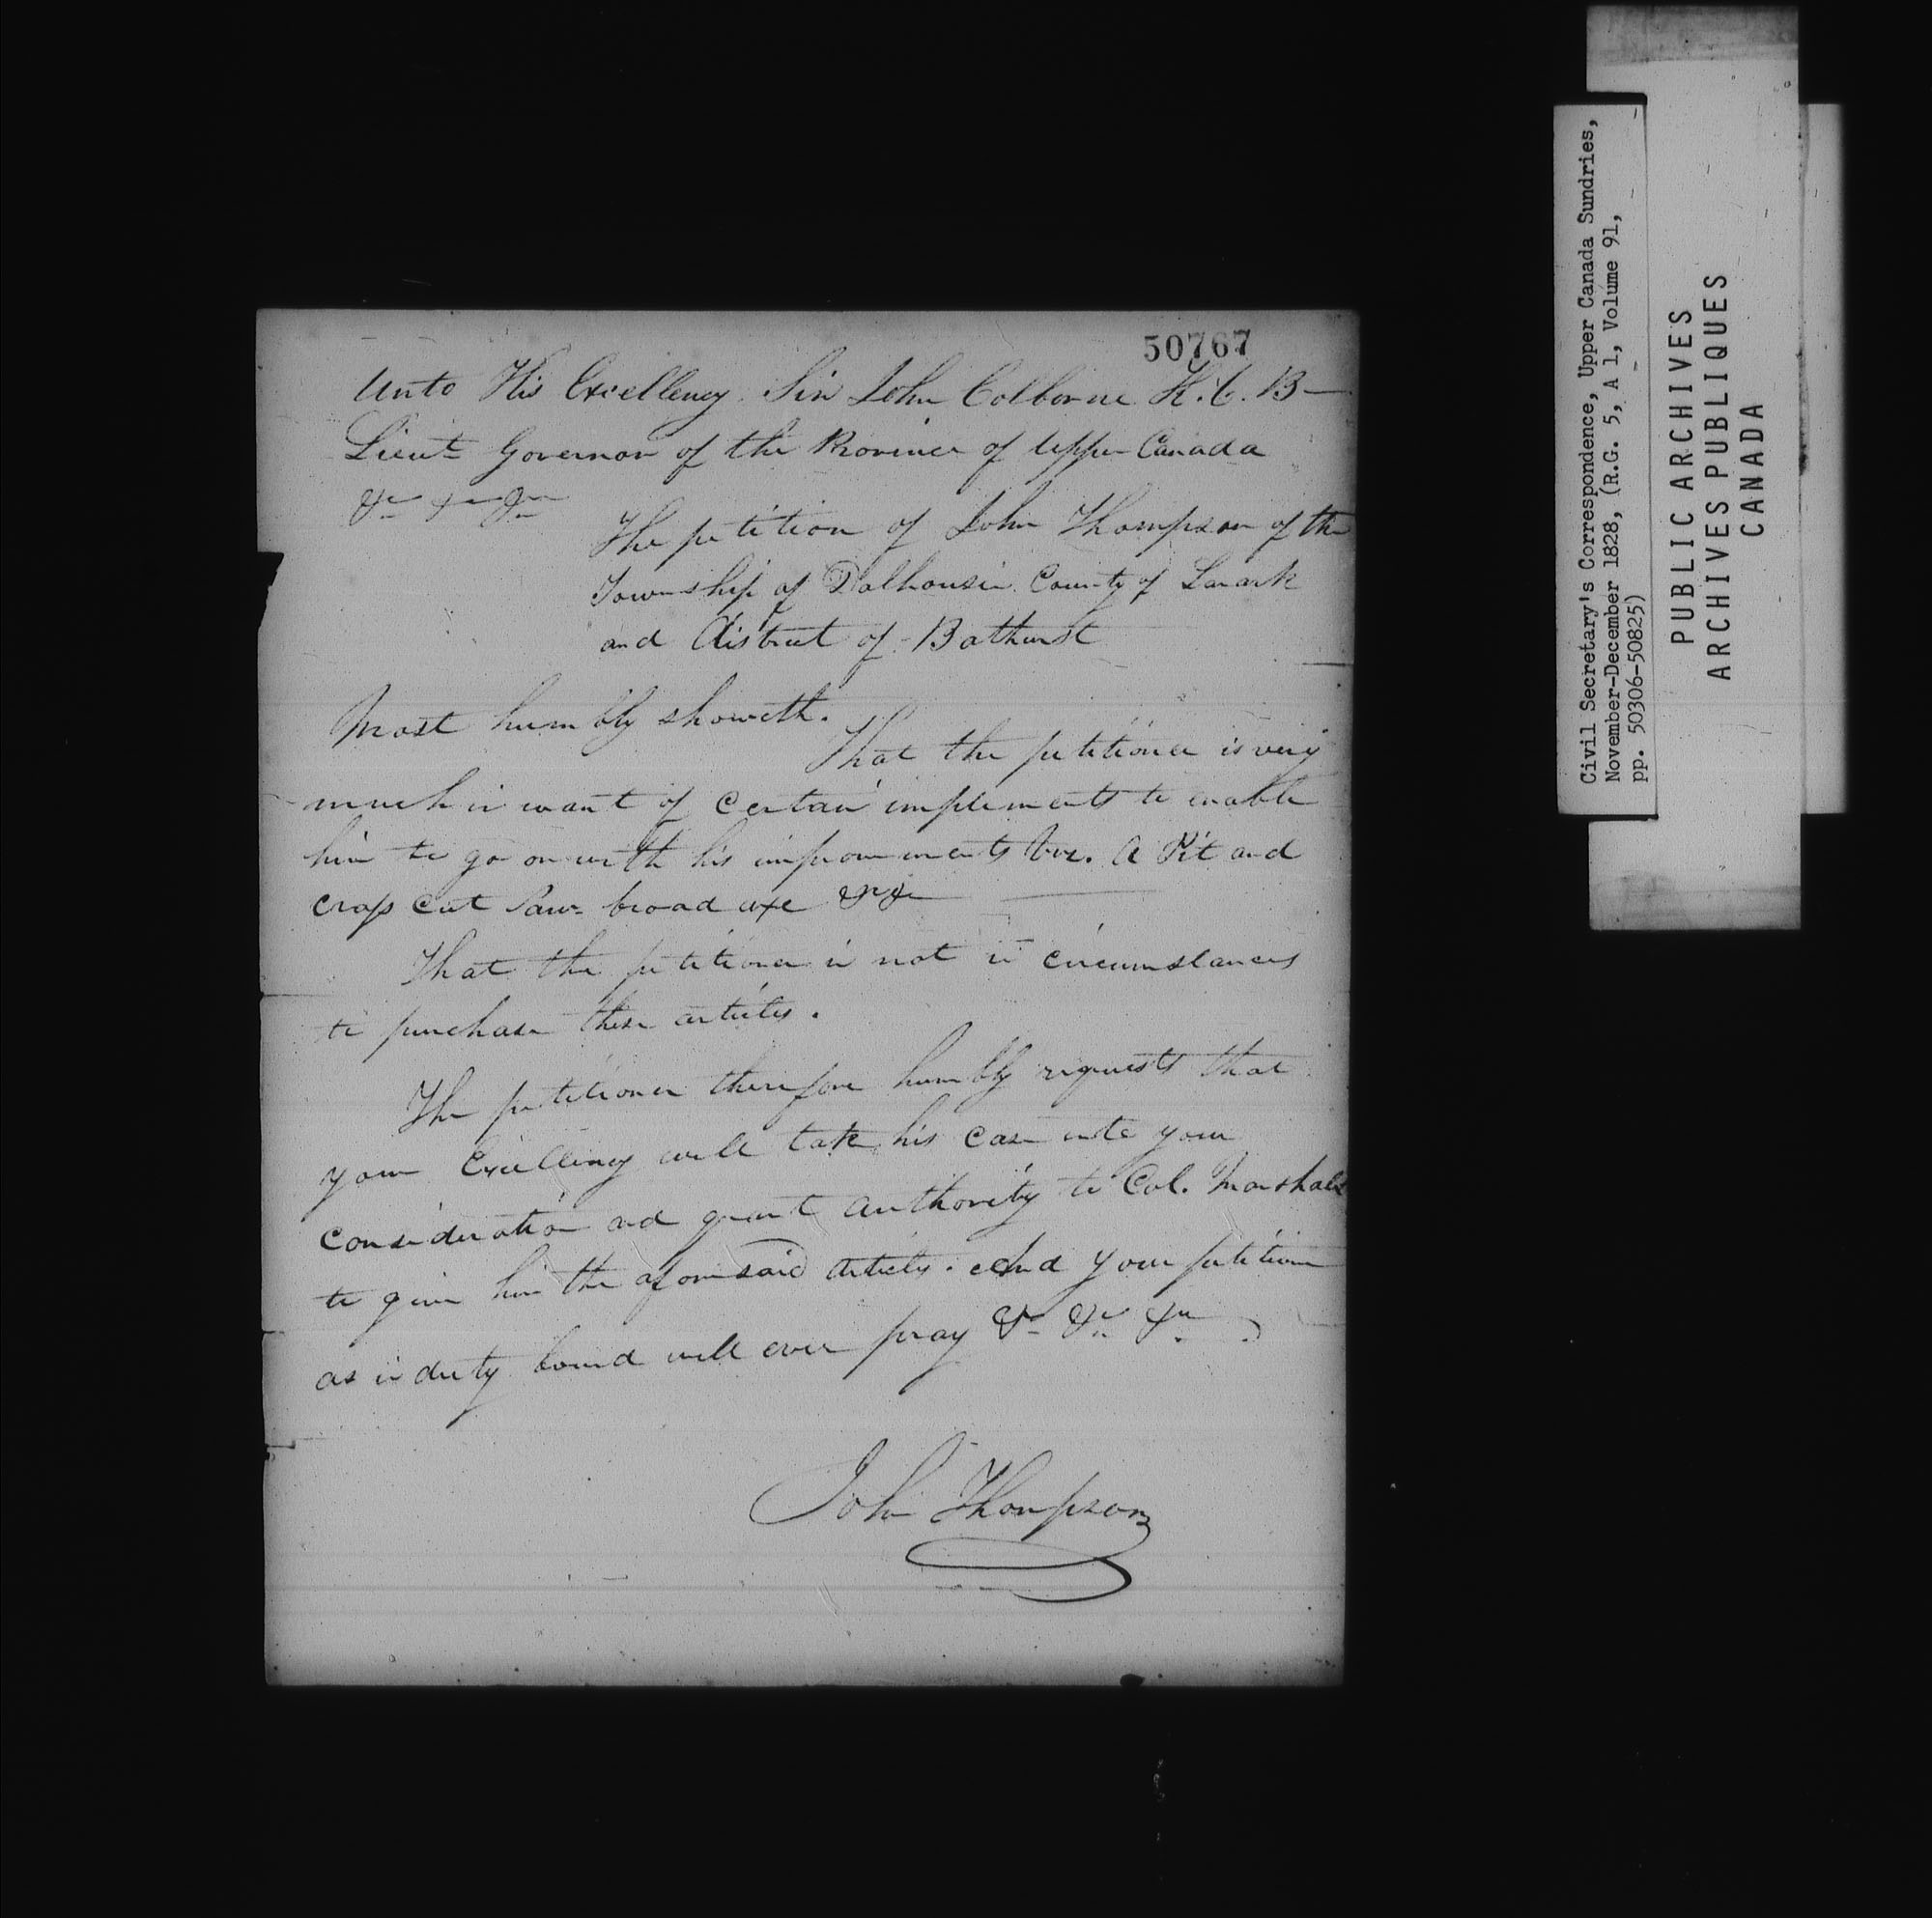 50767
Unto His Excellency Sir John Colborne K.C.B—
Lieut Governor of the Province of Upper Canada
&c &c &c
The petition of John Thompson of the
Township of Dalhousie County of Lanark
and district of Bathurst
Most humbly showeth.
That the petitioner is very
much in want of certain implements to enable
him to go on with his improvements viz. A Pit and
cross cut saw broad axe &c &c
That the petitioner is not in circumstances
to purchase these articles.
The petitioner therefore humbly requests that
your Excellency will take his case into your
consideration and grant authority to Col. Marshall
to give him the aforesaid articles. And your petitioner
as in duty bound will ever pray &c &c &c
John Thompson
Civil Secretary's Correspondence, Upper Canada Sundries,
November-December 1828, (R.G. 5, A 1, Volume 91,
pp. 50306-50825)
PUBLIC ARCHIVES
ARCHIVES PUBLIQUES
CANADA